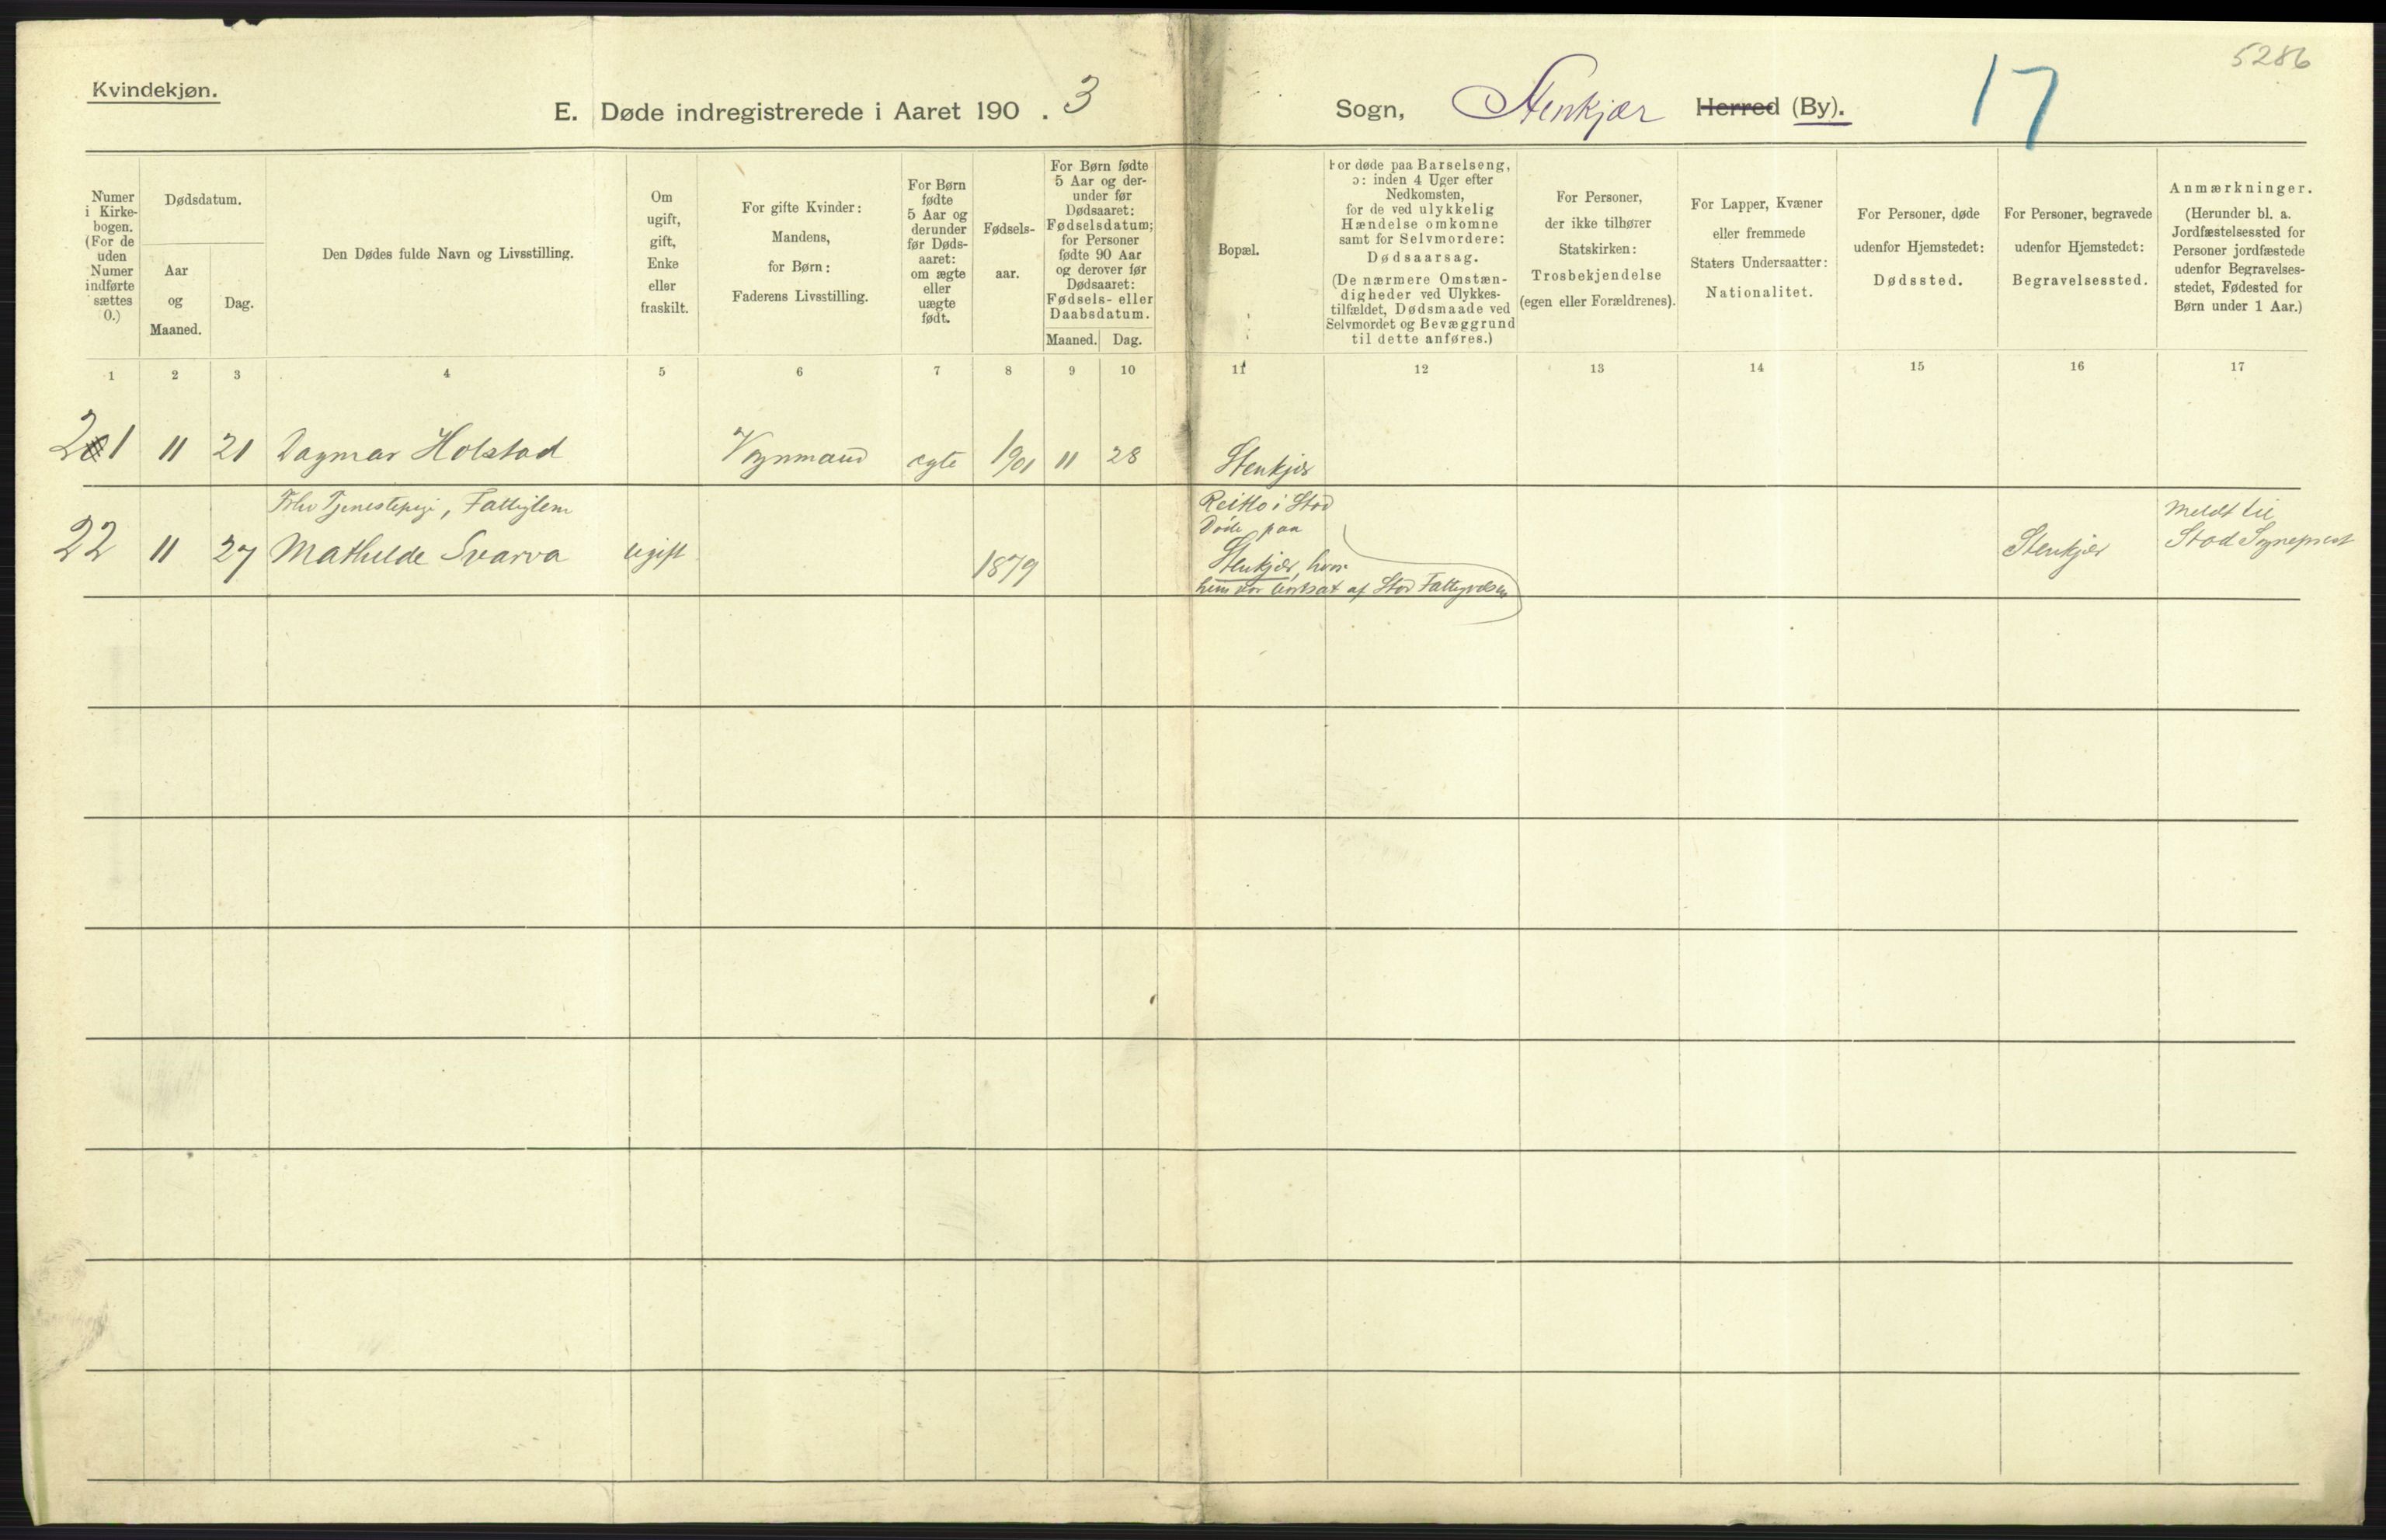 5286
17
Kvindekjøn.
E. Døde indregistrerede i Aaret 190 . 3
Sogn, Stenkjær Herred (By).
Numer
i Kirke-
bogen.
(For de
uden
Numer
indførte
sættes
0.)
Dødsdatum.
Aar
og
Maaned.
Dag.
Den Dødes fulde Navn og Livsstilling.
Om
ugift,
gift,
Enke
eller
fraskilt.
For gifte Kvinder:
Mandens,
for Børn:
Faderens Livsstilling.
For Børn
fødte
5 Aar og
derunder
før Døds-
aaret:
om ægte
eller
uægte
født.
Fødsels-
aar.
For Børn fødte
5 Aar og der-
under før
Dødsaaret:
Fødselsdatum;
for Personer
fødte 90 Aar
og derover før
Dødsaaret:
Fødsels- eller
Daabsdatum.
Maaned. Dag.
Bopæl.
For døde paa Barselseng,
ɔ: inden 4 Uger efter
Nedkomsten,
for de ved ulykkelig
Hændelse omkomne
samt for Selvmordere:
Dødsaarsag.
(De nærmere Omstæn-
digheder ved Ulykkes-
tilfældet, Dødsmaade ved
Selvmordet og Bevæggrund
til dette anføres.)
For Personer,
der ikke tilhører
Statskirken:
Trosbekjendelse
(egen eller Forældrenes).
For Lapper, Kvæner
eller fremmede
Staters Undersaatter:
Nationalitet.
For Personer, døde
udenfor Hjemstedet:
Dødssted.
For Personer, begravede
udenfor Hjemstedet:
Begravelsessted.
Anmærkninger.
(Herunder bl. a.
Jordfæstelsessted for
Personer jordfæstede
udenfor Begravelses-
stedet, Fødested for
Børn under 1 Aar.)
1 2 3 4 5 6 7 8 9 10 11 12 13 14 15 16 17
21 11 21 Dagmar Holstad Vognmand egte 1901 11 28 Stenkjær
Tjenestepige, Fattiglem
22 11 27 Mathilde Svarva ugift 1879
i Stod
Døde paa
Stenkjær, hvor
hun var bortsat af Stod Fattigvæsen
Stenkjær
Meldt til
Stod Sogneprest